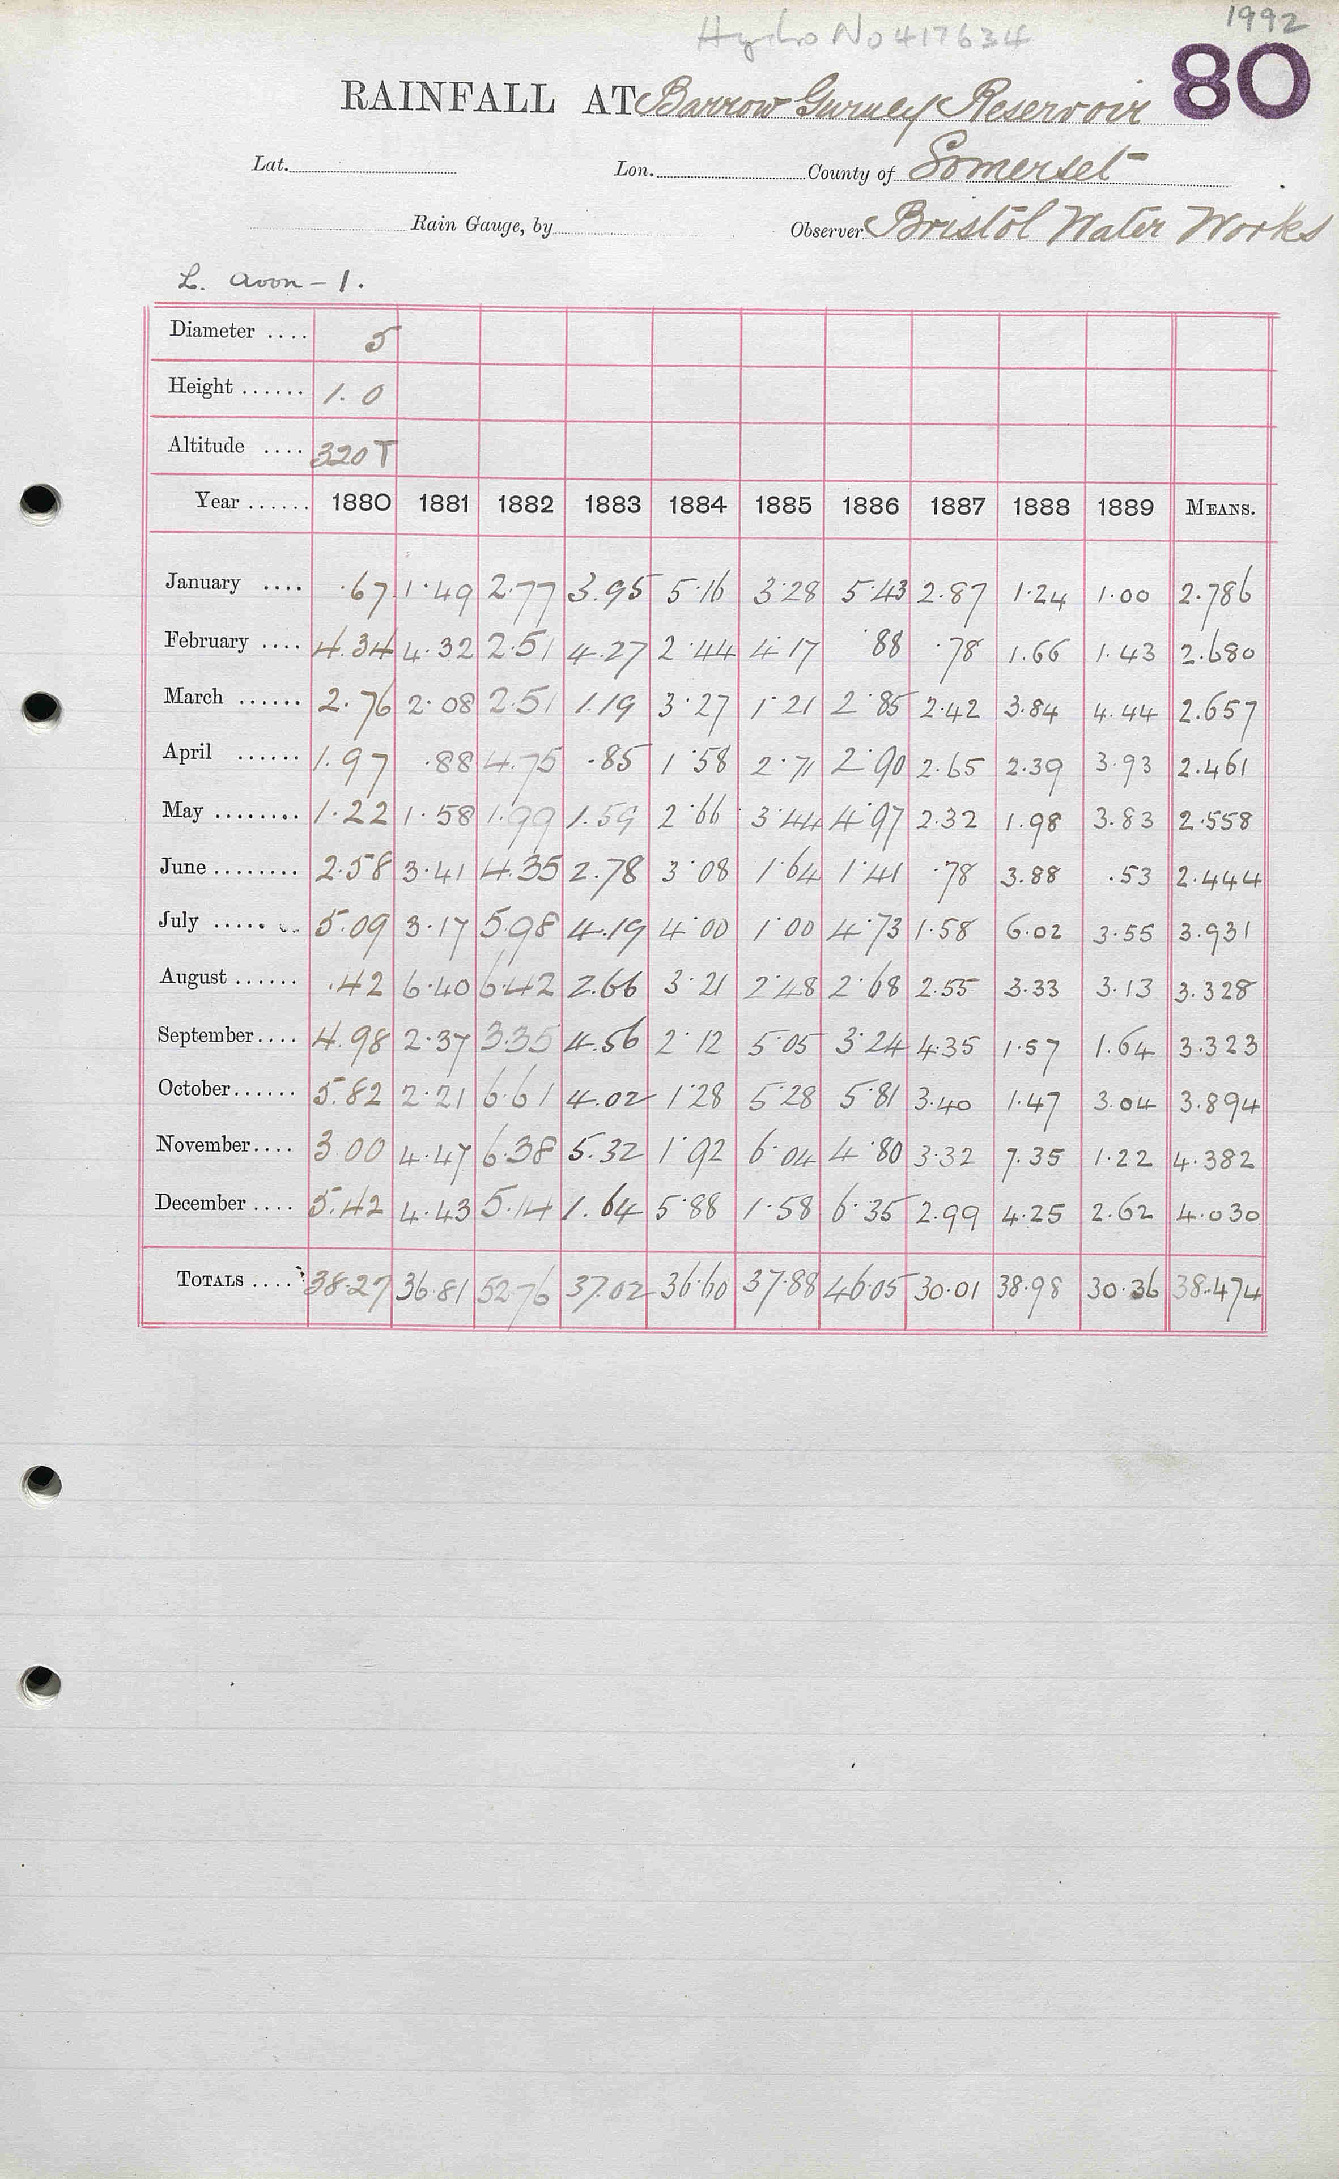 1992
Hydro No 417634
80
RAINFALL AT Barrow Gurney Reservoir
Lat. Lon. County of Somerset
Rain Gauge, by Observer Bristol Water Works
L. Avon - 1.
Diameter .... 5
Height ...... 1.0
Altitude .... 320 T
Year ...... 1880 1881 1882 1883 1884 1885 1886 1887 1888 1889 MEANS.
January .... .67 1.49 2.77 3.95 5.16 3.28 5.43 2.87 1.24 1.00 2.786
February .... 4.34 4.32 2.51 4.27 2.44 4.17 .88 .78 1.66 1.43 2.680
March ...... 2.76 2.08 2.51 1.19 3.27 1.21 2.85 2.42 3.84 4.44 2.657
April ...... 1.97 .88 4.75 .85 1.58 2.71 2.90 2.65 2.39 3.93 2.461
May ........ 1.22 1.58 1.99 1.59 2.66 3.44 4.97 2.32 1.98 3.83 2.558
June ........ 2.58 3.41 4.35 2.78 3.08 1.64 1.41 .78 3.88 .53 2.444
July ..... 5.09 3.17 5.98 4.19 4.00 1.00 4.73 1.58 6.02 3.55 3.931
August ...... .42 6.40 6.42 2.66 3.21 2.48 2.68 2.55 3.33 3.13 3.328
September .... 4.98 2.37 3.35 4.56 2.12 5.05 3.24 4.35 1.57 1.64 3.323
October ...... 5.82 2.21 6.61 4.02 1.28 5.28 5.81 3.40 1.47 3.04 3.894
November .... 3.00 4.47 6.38 5.32 1.92 6.04 4.80 3.32 7.35 1.22 4.382
December .... 5.42 4.43 5.14 1.64 5.88 1.58 6.35 2.99 4.25 2.62 4.030
TOTALS .... 38.27 36.81 52.76 37.02 36.60 37.88 46.05 30.01 38.98 30.36 38.474